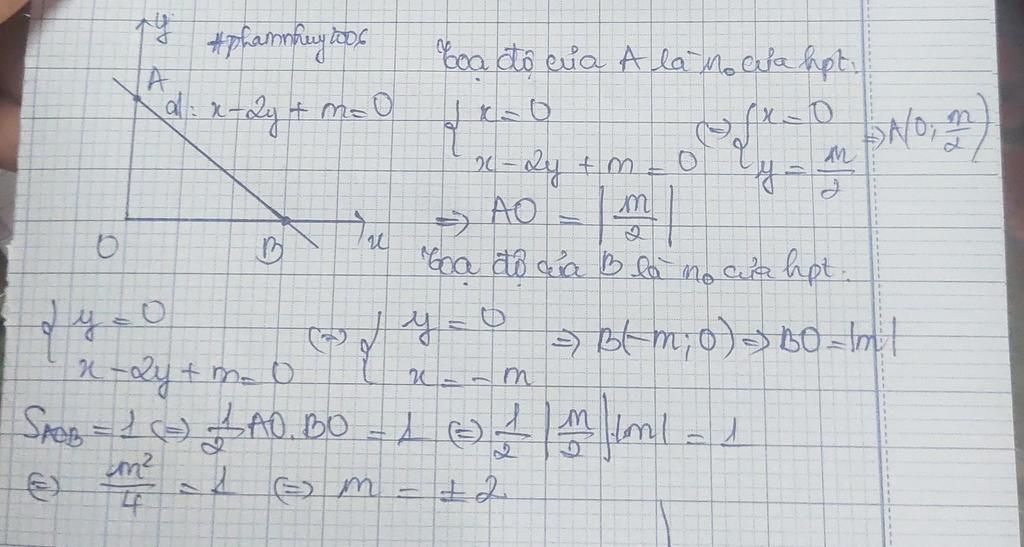 y
#phamnhuy1006
A
d: x-2y+m=0
O
B
x
Toạ độ của A là n₀ của hpt:
{ x=0
x-2y+m=0
(=) { x=0
y=m/2
=> A(0;m/2)
=> AO=|m/2|
Toạ độ của B là n₀ của hpt:
{ y=0
x-2y+m=0
(=) { y=0
x=-m
=> B(-m;0) => BO=|m|
S_AOB=1 (=) 1/2 AO.BO=1 (=) 1/2 |m/2|.|m|=1
(=) m²/4=1 (=) m=±2